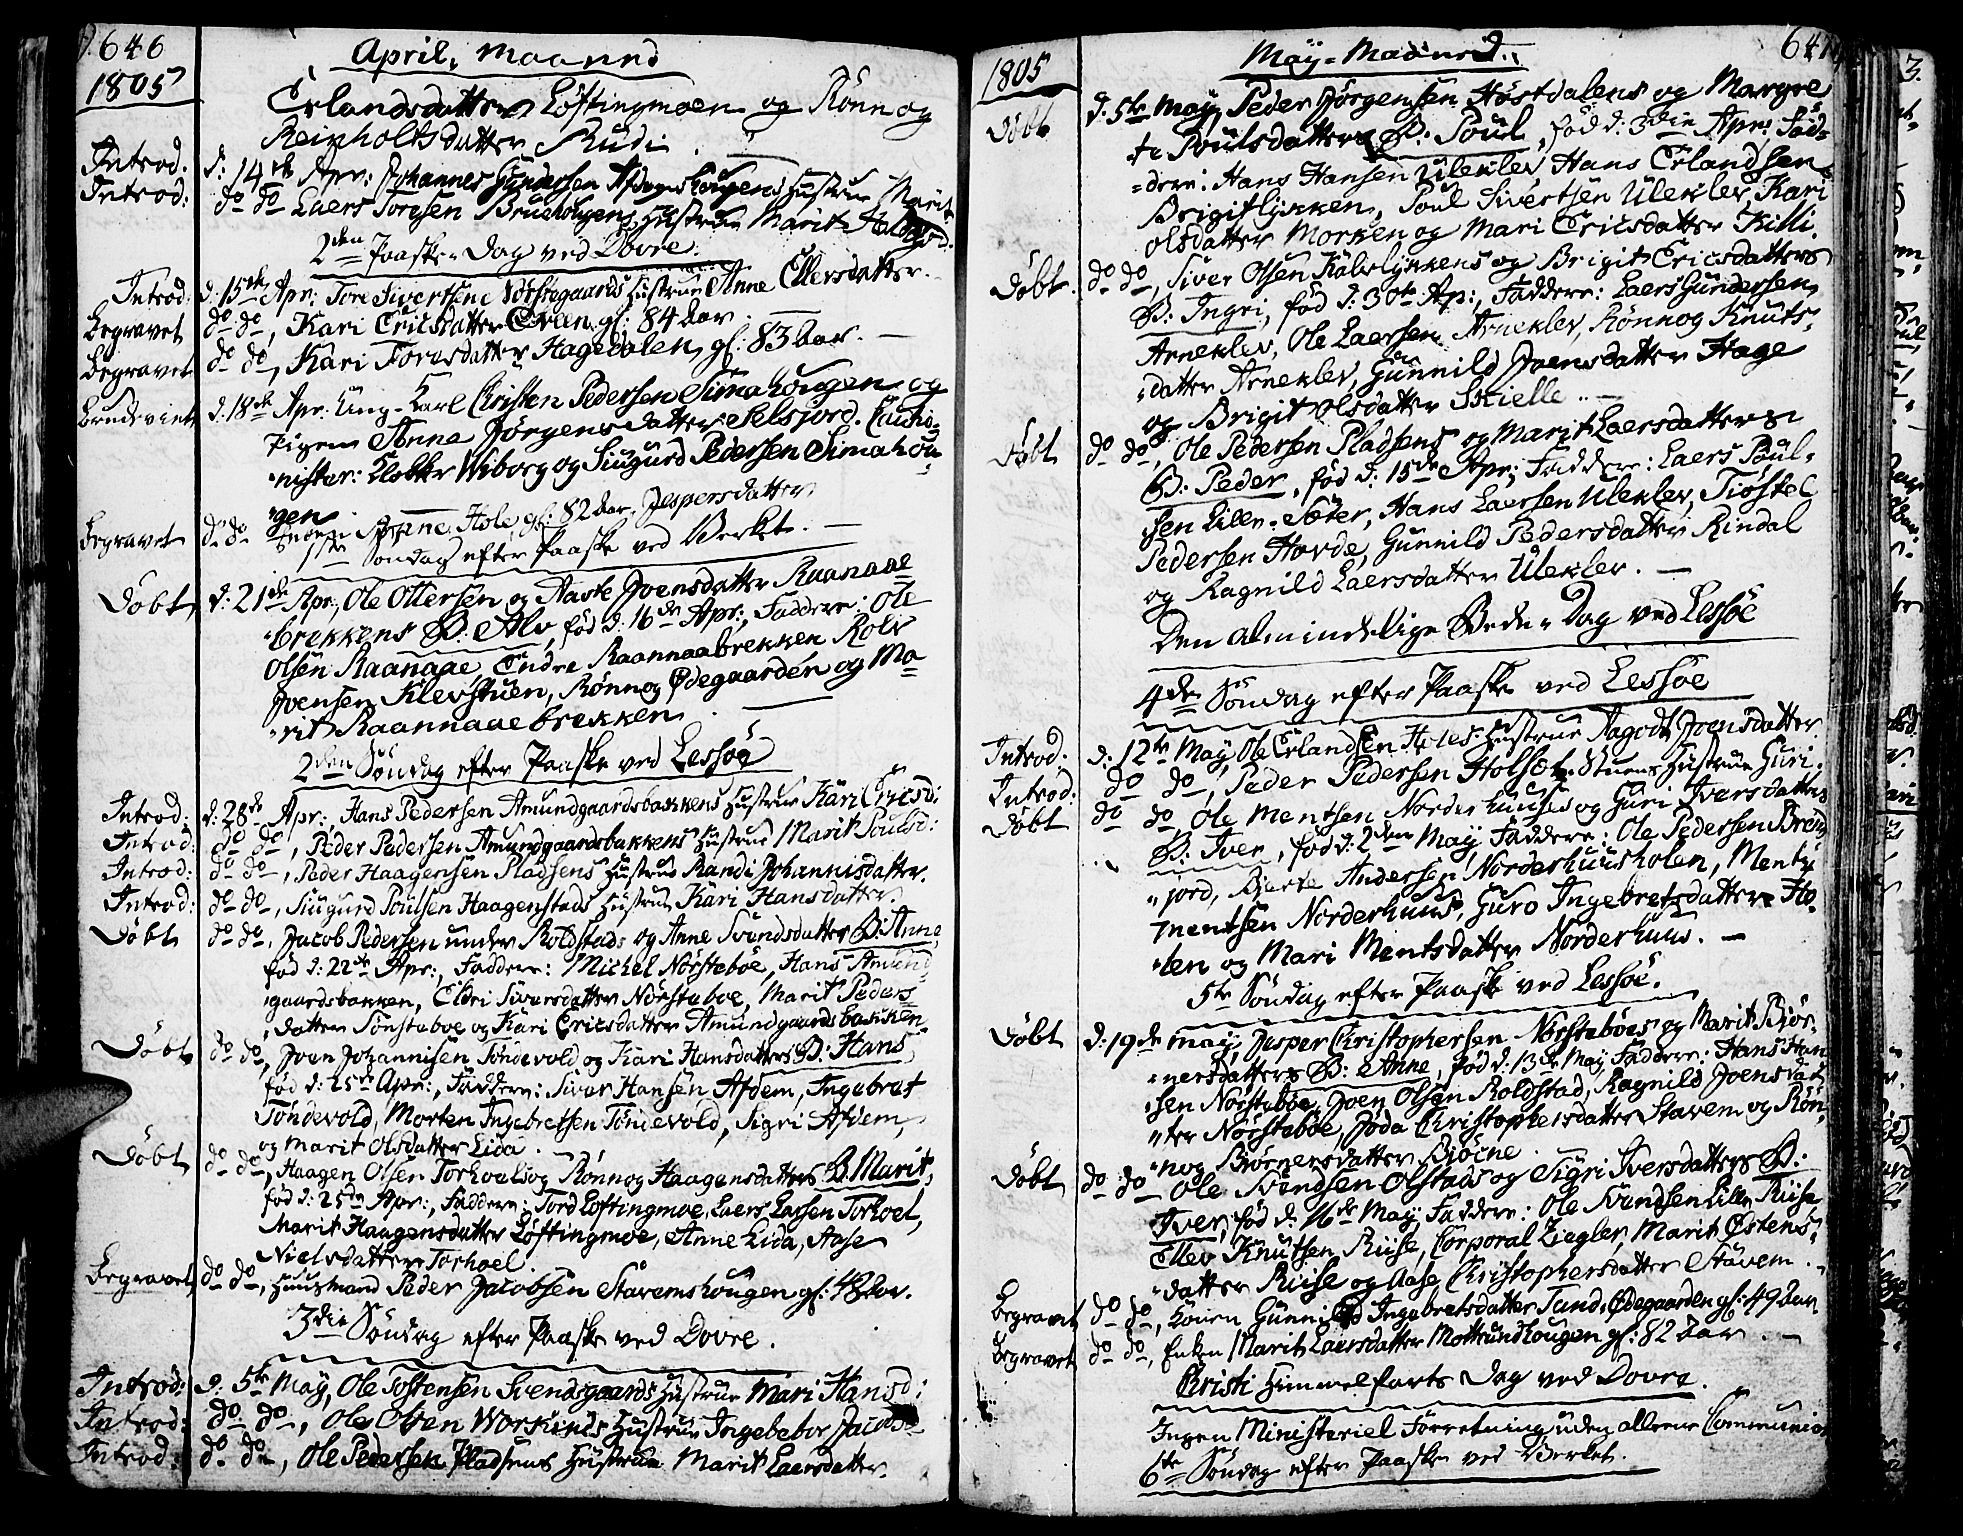 646
April, Maaned
1805
Erlandsdatter Løftingmoen og Rönnog
Reinholtsdatter Rudi.
Introd: d: 14de Apr: Johannes Gundersen Afdemshougens Hustrue Marit
Introd: do do Laers Toresen Bruehougens Hustrue Marit
2den Paaske-Dag ved Dovre.
Introd: d: 15de Apr: Tore Sivertsens Norstegaards Hustrue Anne Ellersdatter.
Begravet do do, Kari Ericsdatter Eveen gl: 84 aar.
Begravet do do, Kari Toresdatter Hagedalen, gl: 83 aar.
Brudeviet d: 18de Apr: Ung-Karl Christen Pedersen Simahougen og
Pigen Anne Jörgensdatter Selsjord. Cautio-
nister: Klokker Wiborg og Siugurd Pedersen Simahou-
gen.
Begravet do do Hole, gl: 82 aar, Jespersdatter
1ste Søndag efter Paaske ved Verket.
Döbt d: 21de Apr:, Ole Ottersen og Aaste Joensdatter Raanaae
brekkens B: Alv, fød d: 16de Apr:, Faddere: Ole
Olsen Raanaae, Endre Raannaabrekken Rolv
Joensen Klevstuen, Rönnog Ødegaarden og Ma-
rit Raannaaebrekken.
2den Søndag efter Paaske ved Lessøe
Introd: d: 28de Apr:, Hans Pedersen Amundgaardsbakkens Hustrue Kari Ericsd:
Introd: do do, Peder Pedersen Amundgaardsbakkens Hustrue Marit Poulsd:
Introd: do do, Peder Haagensen Pladsens Hustrue Randi Johannisdatter.
Introd: do do, Siugurd Poulsen Haagenstads Hustrue Kari Hansdatter.
Döbt do do, Jacob Pedersen under Roldstad og Anne Svendsdatters B: Anne,
fød d: 22de Apr:, Faddere: Michel Nörsteböe, Hans Amund-
gaardsbakken, Eldri Siversdatter Nörsteboe, Marit Peders-
datter Sönsteboe og Kari Ericsdatter Amundgaardsbakken
Döbt do do, Joen Johannisen Töndevold og Kari Hansdatters B: Hans
fød d: 25de Apr:, Faddere: Sivar Hansen Afdem, Ingebret
Töndevold, Morten Ingebretsen Töndevold, Sigri Afdem,
og Marit Olsdatter Lida.
Döbt do do, Haagen Olsen Torhoels og Rönnog Haagensdatters B. Marit,
fød d: 25de Apr:, Faddere: Tord Löftingmoe, Laers Larsen Torhoel,
Marit Haagensdatter Löftingmoe, Anne Lida, Aase
Nielsdatter Torhoel.
Begravet do do, Huusmand Peder Jacobsen Stavemshougen gl: 48 aar.
3die Søndag efter Paaske ved Dovre.
Introd: d: 5te May, Ole Tostensen Svendsgaards Hustrue Mari Hansd:
Introd: do do, Ole Olsen Workinds Hustrue Ingebebor Jacobs
Introd: do do, Ole Pedersen Pladsens Hustrue Marit Laersdatter.
647
1805
May-Maaned.
Döbt d: 5te May, Peder Jörgensen Høstdalens og Margre
te Poulsdatters B: Poul, fød d: 3die Apr: Fad-
dere: Hans Hansen Ulekler, Hans Erlandsen
Brigitlykken, Poul Sivertsen Ulekler, Kari
Olsdatter Morken og Mari Ericsdatter Killi.
Döbt. do do, Siver Olsen Kalvlykkens og Brigit Ericsdatters
B: Ingri, fød d: 30te Ap:, Faddere: Laers Gundersen
Arnekler, Ole Laersen Arnekler, Rönnog Knuts-
datter Arnekler, Gunnild Joensdatter Hage
og Brigit Olsdatter Skielle.
Döbt do do, Ole Pedersen Pladsens og Marit Laersdatters
B: Peder, fød d: 15de Apr; Faddere: Laers Poul-
sen Lille-Sæter, Hans Laersen Ulekler, Tiøstel
Pedersen Hovde, Gunnild Pedersdatter Rindal
og Ragnild Laersdatter Ulekler.
Den almindelige Bede-Dag ved Lessøe
4de Søndag efter Paaske ved Lessøe
Introd: d: 12te May, Ole Erlandsen Holes Hustrue Aagodt Joensdatter
Introd: do do, Peder Pedersen Holsæt-Stuens Hustrue Guri.
Döbt do do Ole Mentsen Norderhuuses og Guri Iversdatters
B: Iver, fød d: 2den May, Faddere: Ole Pedersen
jord, Bierte Andersen Norderhuusholen, Mentz
Mentsen Norderhuus, Guro Ingebretsdatter Ho-
len og Mari Mentsdatter Norderhuus.
5te Søndag efter Paaske ved Lessøe.
Döbt d: 19de May, Jesper Christophersen Nörsteböes og Marit Biör-
nersdatters B: Anne, fød d: 13de May, Faddere: Hans Han
sen Nörsteböe, Joen Olsen Roldstad, Ragnild Joensdat
ter Nörsteböe, Joda Christophersdatter Stavem og Rön-
nog Biörnersdatter Biöcne.
Döbt do do Ole Svendsen Olstads og Sigri Iversdatters B:
Iver, fød d: 16de May, Faddere: Ole Svendsen Lille Riise
Ellev Knutsen Riise, Corporal Ziegler, Marit Östens-
datter Riise og Aase Christophersdatter Stavem.
Begravet do do, Konen Gunnild Ingebretsdatter Tand-Ødegaarden gl: 49 aar
Begravet do do, Enken Marit Laersdatter Mottundhougen gl: 82 aar.
Christi Himmelfarts Dag ved Dovre.
Ingen Ministeriel Forretning uden allene Communion
6te Søndag efter Paaske ved Verket.